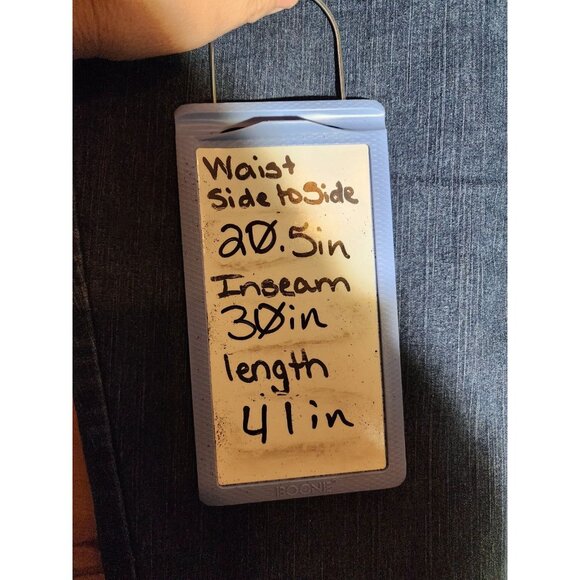 Waist
Side to Side
20.5in
Inseam
30in
length
41in
BOONE